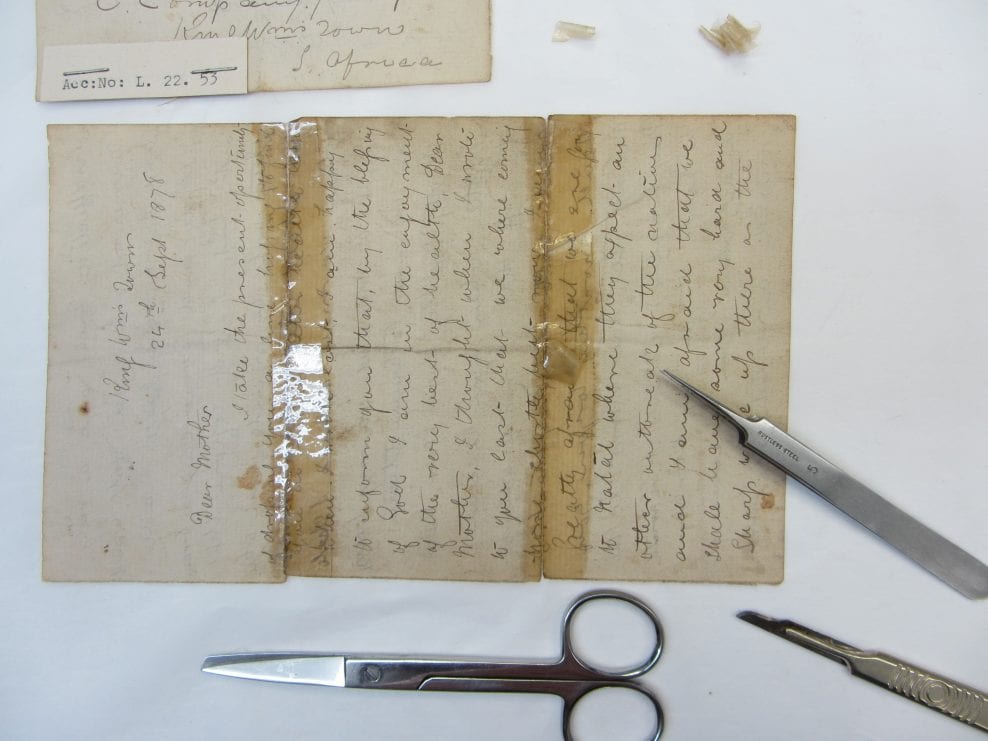 C. Company,
King Wms Town
S. Africa
Acc:No: L. 22. 53
King Wms Town
24th Sept 1878
Dear Mother
I take the present opertunity
you a few
I am happy
to inform you that, by the blessing
of God I am in the enjoyment
of the very best of health, Dear
Mother, I thought when I wrote
to you last that we where coming
home shortly but
greatly afraid that we are for
to Natal where they expect an
other outbreak of the natives
and I am afraid that we
shall have some very hard and
Sharp up there as the
RUSTLESS STEEL